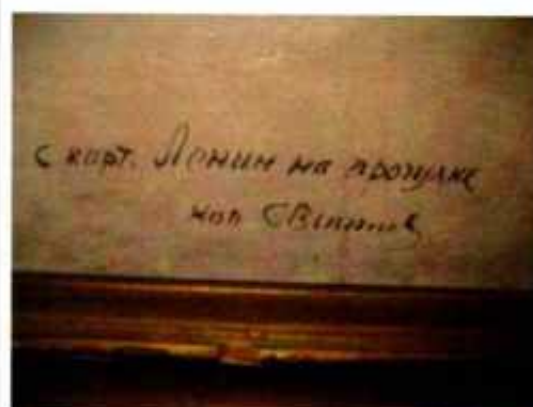 с карт. Ленин на прогулке
коп.